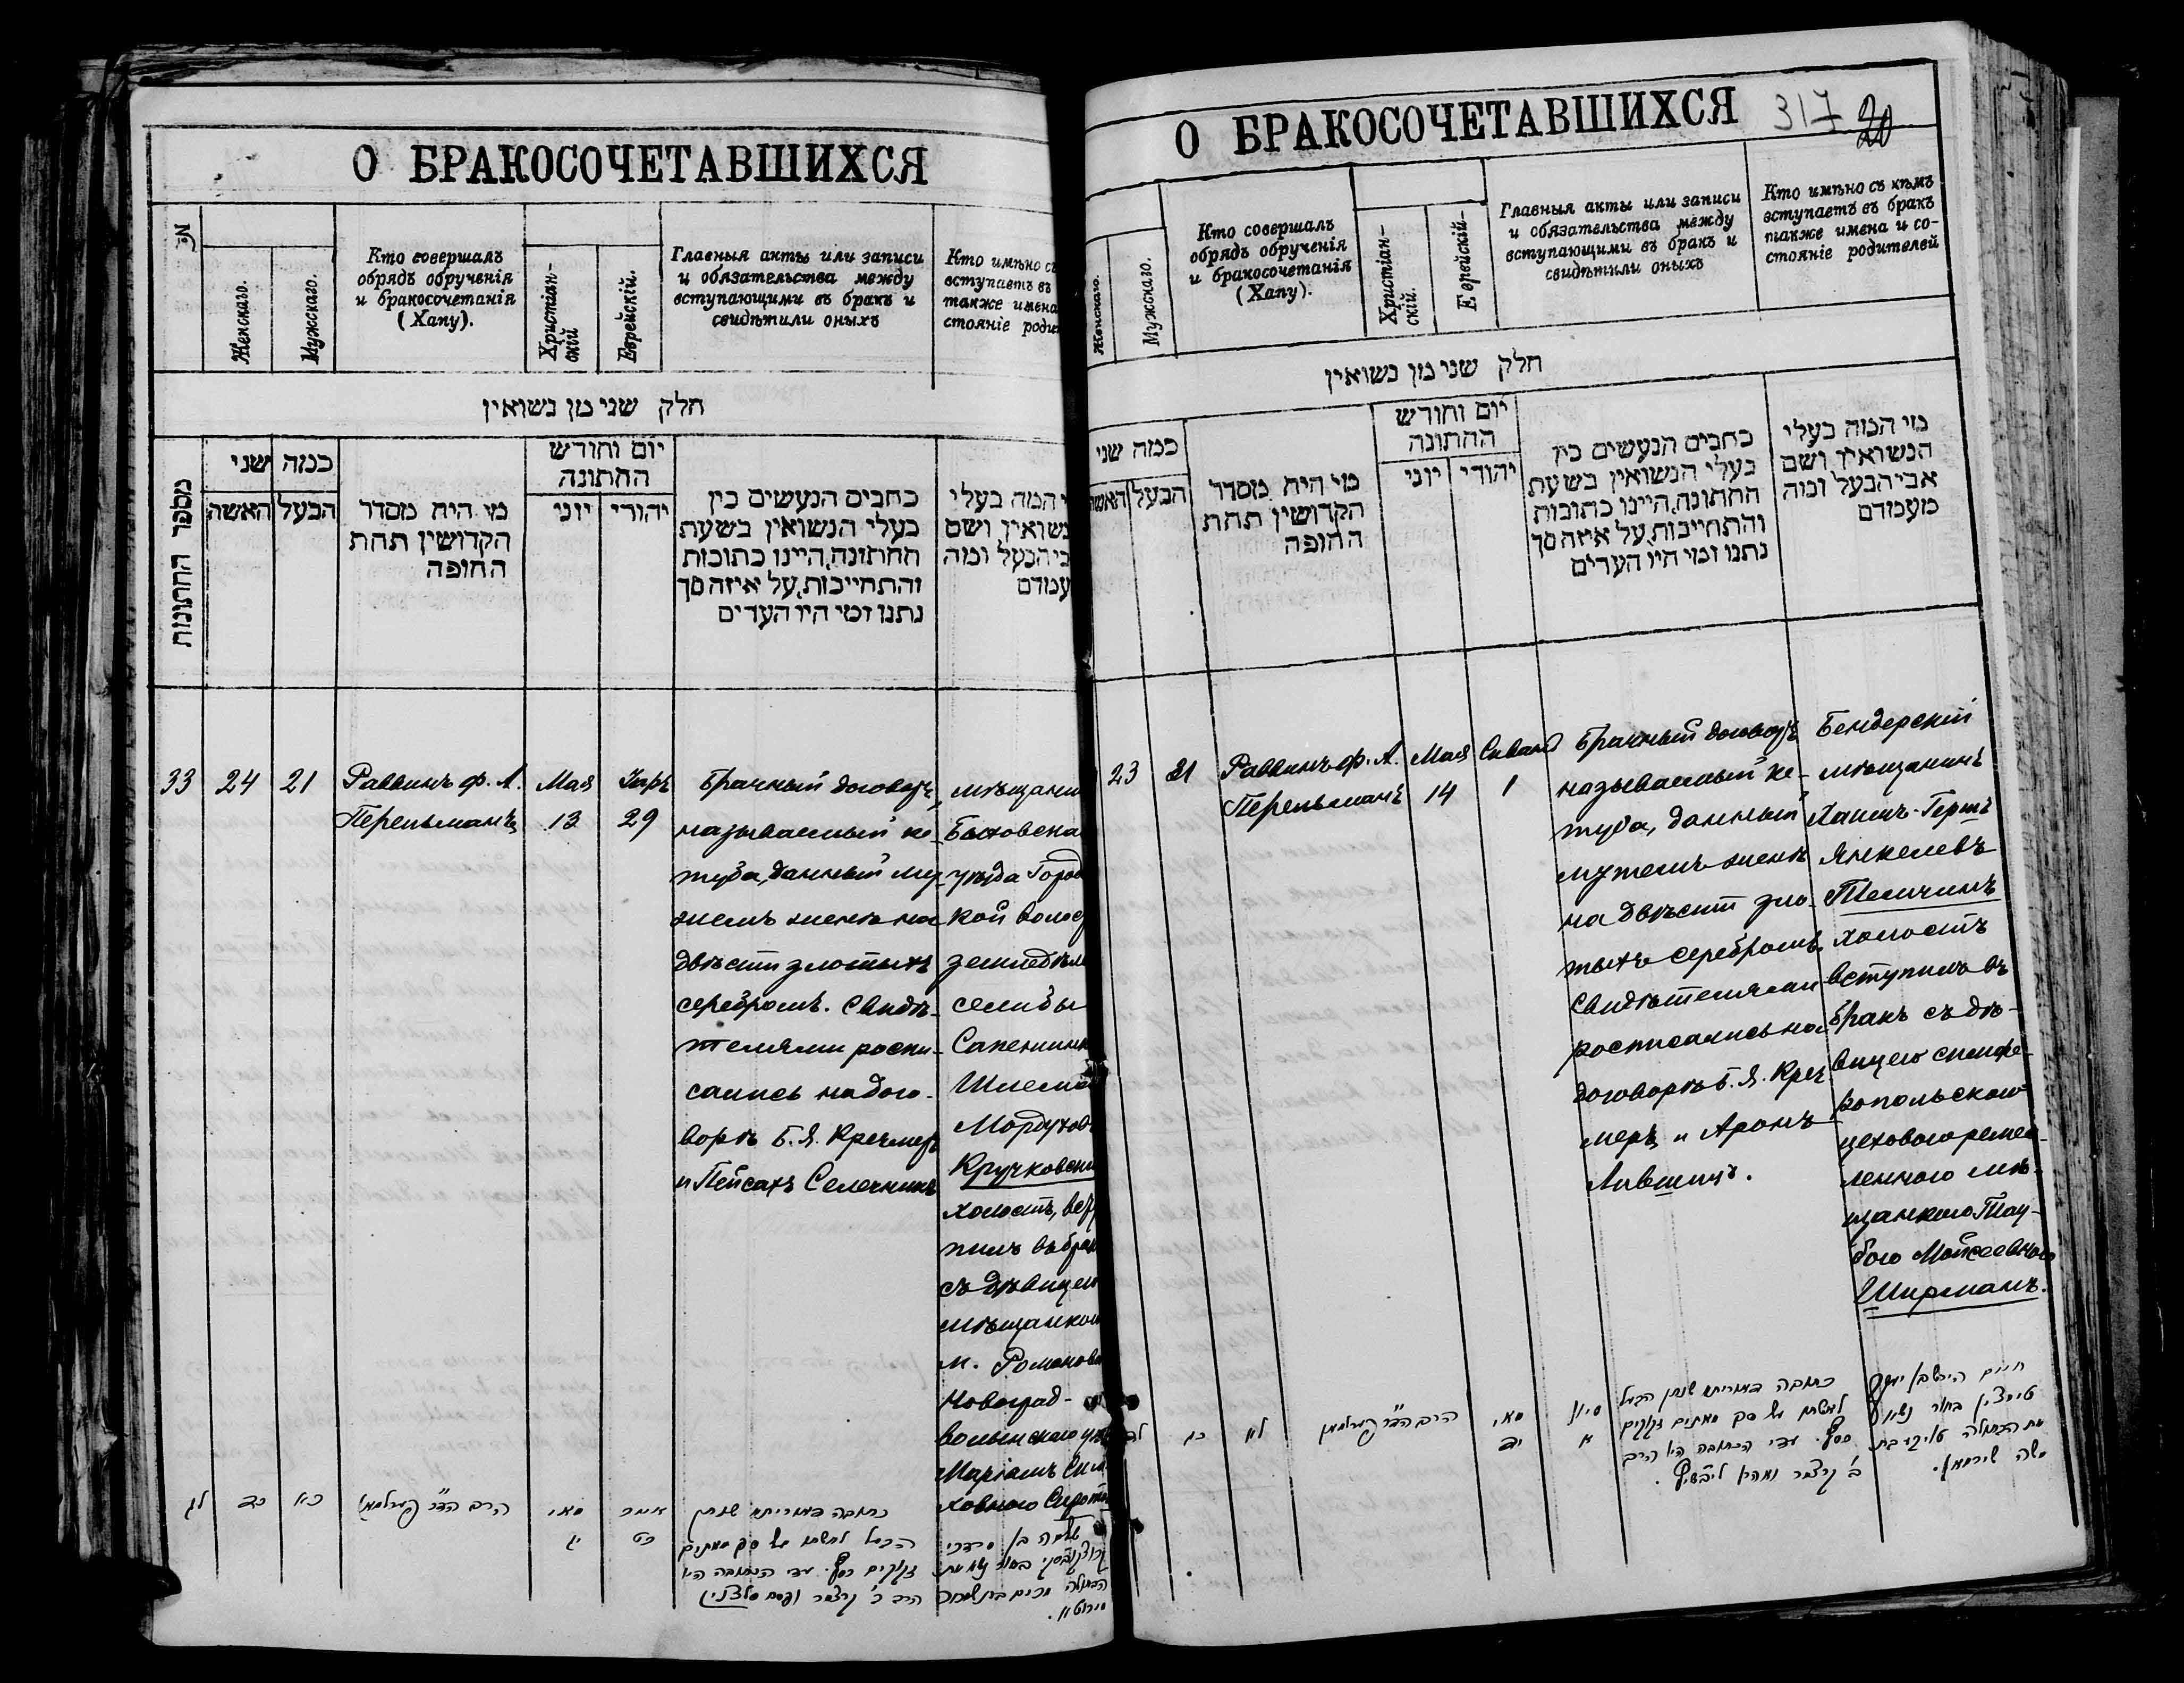 О БРАКОСОЧЕТАВШИХСЯ
№
Женскаго.
Мужскаго.
Кто совершалъ
обрядъ обрученія
и бракосочетанія
(Хапу).
Христіан-
скій
Еврейскій.
Главныя акты или записи
и обязательства между
вступающими въ бракъ и
свидѣтили оныхъ
Кто имѣно съ
вступаетъ въ
также имена
стояніе роди
חלק שני מן נשואין
מספר החתונות
כמה שני
האשה
הבעל
מי היה מסדר
הקדושין תחת
החופה
יום וחודש
החתונה
יוני
יהודי
כתבים הנעשים בין
בעלי הנשואין בשעת
החתונה, היינו כתובות
והתחייבות, על איזה סך
נתנו ומי היו העדים
המה בעלי
נשואין ושם
בי הבעל ומה
עמדם
33
24
21
Раввинъ Ф. А.
Перельманъ
Мая
13
Іаръ
29
Брачный договоръ,
называемый ке-
туба, данный му-
жемъ женѣ на
двѣсти злотыхъ
серебромъ. Свидѣ-
телями роспи-
сались на дого-
ворѣ Б. Я. Кречмеръ
и Пейсахъ Селечникъ
мѣщани
Быховска
уѣзда Город
кой волос
земледѣл
селибы
Сапежинк
Шлема
Мордухов
Кручковски
холостъ, всту
пилъ въ брак
съ дѣвицею
мѣщанкою
м. Романова
Новоград-
волынскаго у
Маріамъ Сим
ховною Сирота
לג
כד
כא
הרב הד"ר פערלמאן
מאי
יג
אייר
כט
כתובה באחריות שנתן
הבעל לאשתו על סך מאתים
זקוקים כסף. עדי הכתובה היו
הרב ב' קרצמר ופסח סלצניק
שלמה בן מרדכי
הבתולה מרים בת שמחה
סיראטא.
О БРАКОСОЧЕТАВШИХСЯ
317
20
Женскаго.
Мужскаго.
Кто совершалъ
обрядъ обрученія
и бракосочетанія
(Хапу).
Христіан-
скій.
Еврейскій-
Главныя акты или записи
и обязательства между
вступающими въ бракъ и
свидѣтили оныхъ
Кто имѣно съ кѣмъ
вступаетъ въ бракъ
также имена и со-
стояніе родителей
חלק שני מן נשואין
כמה שני
האשה
הבעל
מי היה מסדר
הקדושין תחת
החופה
יום וחודש
החתונה
יוני
יהודי
כתבים הנעשים בין
בעלי הנשואין בשעת
החתונה, היינו כתובות
והתחייבות, על איזה סך
נתנו ומי היו העדים
מי המה בעלי
הנשואין, ושם
אבי הבעל ומה
מעמדם
23
31
Раввинъ Ф. А.
Перельманъ
Мая
14
Сивана
1
Брачный договоръ
называемый ке-
туба, данный
мужемъ женѣ
на двѣсти зло-
тыхъ серебромъ.
Свидѣтелями
росписались на
договорѣ Б. Я. Креч
меръ и Аронъ
Лившицъ.
Бендерскій
мѣщанинъ
Хаимъ-Гершъ
Янкелевъ
Телчинъ
холостъ
вступилъ въ
бракъ съ дѣ-
вицею симфе-
ропольскою
цехового ремес-
леннаго мѣ-
щанкою Тау-
бою Мойсеевною
Ширманъ.
לא
הרב הד"ר פערלמאן
מאי
יד
סיון
א
כתובה באחריות שנתן הבעל
לאשתו על סך מאתים זקוקים
כסף. עדי הכתובה היו הרב
ב' קרצמר ואהרן ליבשיץ.
חיים הירש בן יעקב
את הבתולה טויבע בת
משה שירמאן.